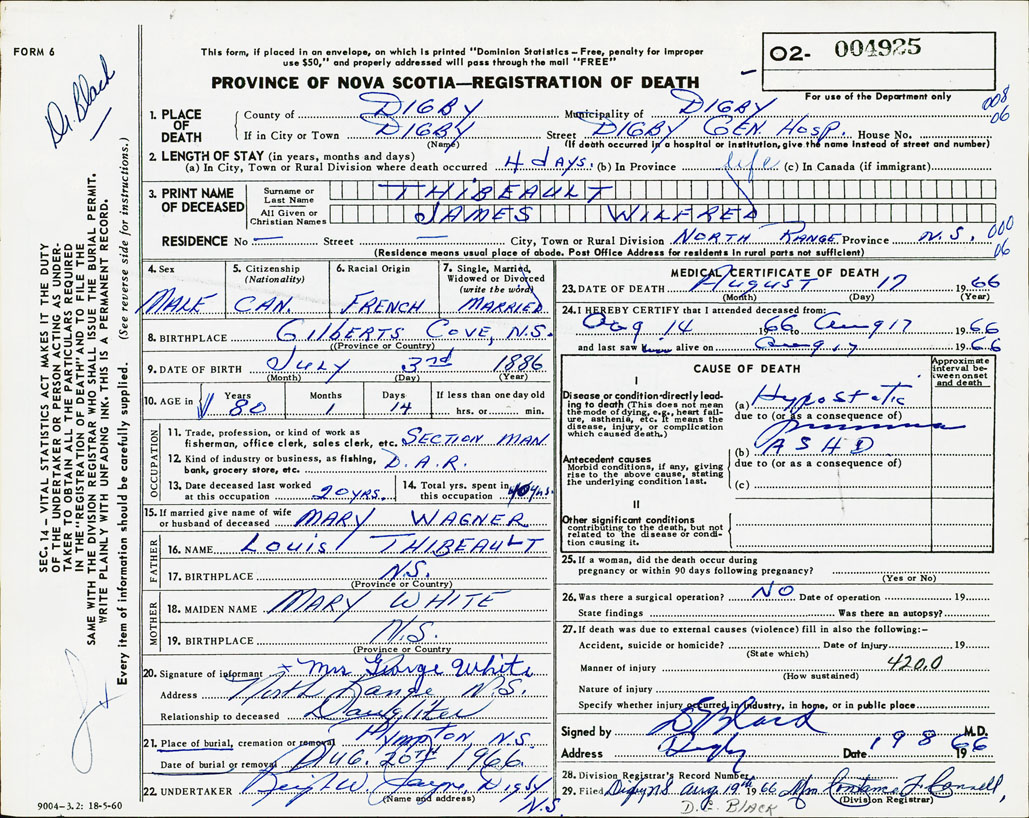 FORM 6
Dr. Black
This form, if placed in an envelope, on which is printed "Dominion Statistics – Free, penalty for improper
use $50," and properly addressed will pass through the mail "FREE"
PROVINCE OF NOVA SCOTIA—REGISTRATION OF DEATH
02- 004925
For use of the Department only
008
06
1. PLACE OF DEATH
County of DIGBY Municipality of DIGBY
If in City or Town DIGBY Street DIGBY GEN. HOSP. House No.
(Name) (If death occurred in a hospital or institution, give the name instead of street and number)
2. LENGTH OF STAY (in years, months and days)
(a) In City, Town or Rural Division where death occurred 4 days. (b) In Province life (c) In Canada (if immigrant)
3. PRINT NAME OF DECEASED
Surname or Last Name THIBEAULT
All Given or Christian Names JAMES WILFRED
RESIDENCE No — Street — City, Town or Rural Division NORTH RANGE Province N.S. 000
06
(Residence means usual place of abode. Post Office Address for residents in rural parts not sufficient)
4. Sex MALE
5. Citizenship (Nationality) CAN.
6. Racial Origin FRENCH
7. Single, Married, Widowed or Divorced (write the word) MARRIED
8. BIRTHPLACE GILBERTS COVE, N.S.
(Province or Country)
9. DATE OF BIRTH JULY 3rd 1886
(Month) (Day) (Year)
10. AGE in Years 80 Months 1 Days 14 If less than one day old
hrs. or min.
OCCUPATION
11. Trade, profession, or kind of work as
fisherman, office clerk, sales clerk, etc. SECTION MAN.
12. Kind of industry or business, as fishing,
bank, grocery store, etc. D.A.R.
13. Date deceased last worked at this occupation 20 YRS.
14. Total yrs. spent in this occupation 40 yrs.
15. If married give name of wife
or husband of deceased MARY WAGNER
FATHER
16. NAME LOUIS THIBEAULT
17. BIRTHPLACE N.S.
(Province or Country)
MOTHER
18. MAIDEN NAME MARY WHITE
19. BIRTHPLACE N.S.
(Province or Country)
20. Signature of informant Mrs George White
Address North Range N.S.
Relationship to deceased Daughter
21. Place of burial, cremation or removal Plympton N.S.
Date of burial or removal AUG. 20TH 1966
22. UNDERTAKER Jayne, Digby
(Name and address) N.S.
9004-3.2: 18-5-60
MEDICAL CERTIFICATE OF DEATH
23. DATE OF DEATH August 17 1966
(Month) (Day) (Year)
24. I HEREBY CERTIFY that I attended deceased from:
Aug 14 1966 to Aug 17 1966
and last saw him alive on Aug 17 1966
CAUSE OF DEATH
Approximate interval between onset and death
I
Disease or condition directly leading to death (This does not mean the mode of dying, e.g., heart failure, asthenia, etc. It means the disease, injury, or complication which caused death.)
(a) Hypostatic
due to (or as a consequence of)
Pneumonia
(b) ASHD
due to (or as a consequence of)
(c)
Antecedent causes
Morbid conditions, if any, giving rise to the above cause, stating the underlying condition last.
II
Other significant conditions
contributing to the death, but not related to the disease or condition causing it.
25. If a woman, did the death occur during
pregnancy or within 90 days following pregnancy?
(Yes or No)
26. Was there a surgical operation? NO Date of operation 19
State findings Was there an autopsy?
27. If death was due to external causes (violence) fill in also the following:–
Accident, suicide or homicide? Date of injury 19
(State which)
Manner of injury 420.0
(How sustained)
Nature of injury
Specify whether injury occurred in industry, in home, or in public place
Signed by D Black M.D.
Address Digby Date 19 8 1966
28. Division Registrar's Record Number
29. Filed Digby NS Aug 19th 1966 Mrs Constance F. Connell,
D.E. BLACK (Division Registrar)
SEC. 14 – VITAL STATISTICS ACT MAKES IT THE DUTY
OF THE UNDERTAKER OR PERSON ACTING AS UNDER-
TAKER TO OBTAIN ALL THE PARTICULARS REQUIRED
IN THE "REGISTRATION OF DEATH" AND TO FILE THE
SAME WITH THE DIVISION REGISTRAR WHO SHALL ISSUE THE BURIAL PERMIT.
WRITE PLAINLY WITH UNFADING INK. THIS IS A PERMANENT RECORD.
Every item of information should be carefully supplied. (See reverse side for instructions.)